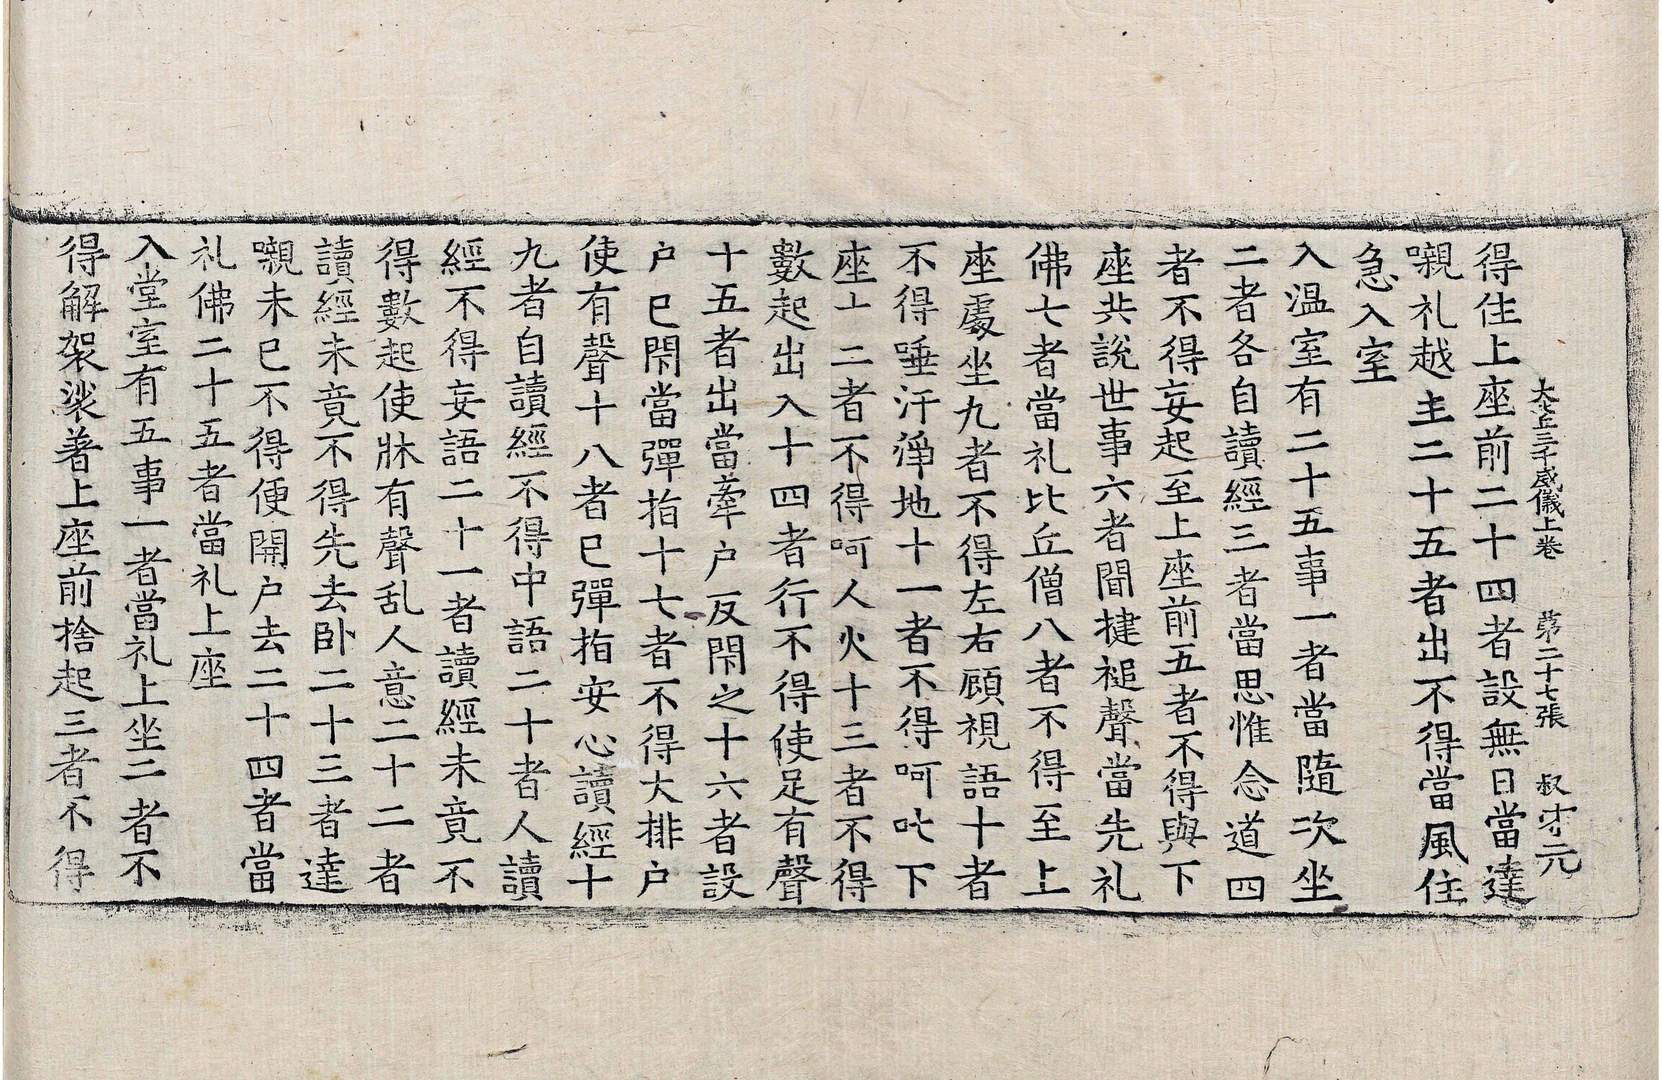 大比丘三千威儀上卷 第二十七張 叔 才元
得住上座前二十四者設無日當達
嚫礼越主二十五者出不得當風住
急入室
入温室有二十五事一者當隨次坐
二者各自讀經三者當思惟念道四
者不得妄起至上座前五者不得與下
座共說世事六者聞揵槌聲當先礼
佛七者當礼比丘僧八者不得至上
座處坐九者不得左右顧視語十者
不得唾汙淨地十一者不得呵叱下
座十二者不得呵人火十三者不得
數起出入十四者行不得使足有聲
十五者出當牽户反閇之十六者設
户已閇當彈指十七者不得大排户
使有聲十八者已彈指安心讀經十
九者自讀經不得中語二十者人讀
經不得妄語二十一者讀經未竟不
得數起使牀有聲乱人意二十二者
讀經未竟不得先去卧二十三者達
嚫未已不得便開户去二十四者當
礼佛二十五者當礼上座
入堂室有五事一者當礼上坐二者不
得解袈裟著上座前捨起三者不得